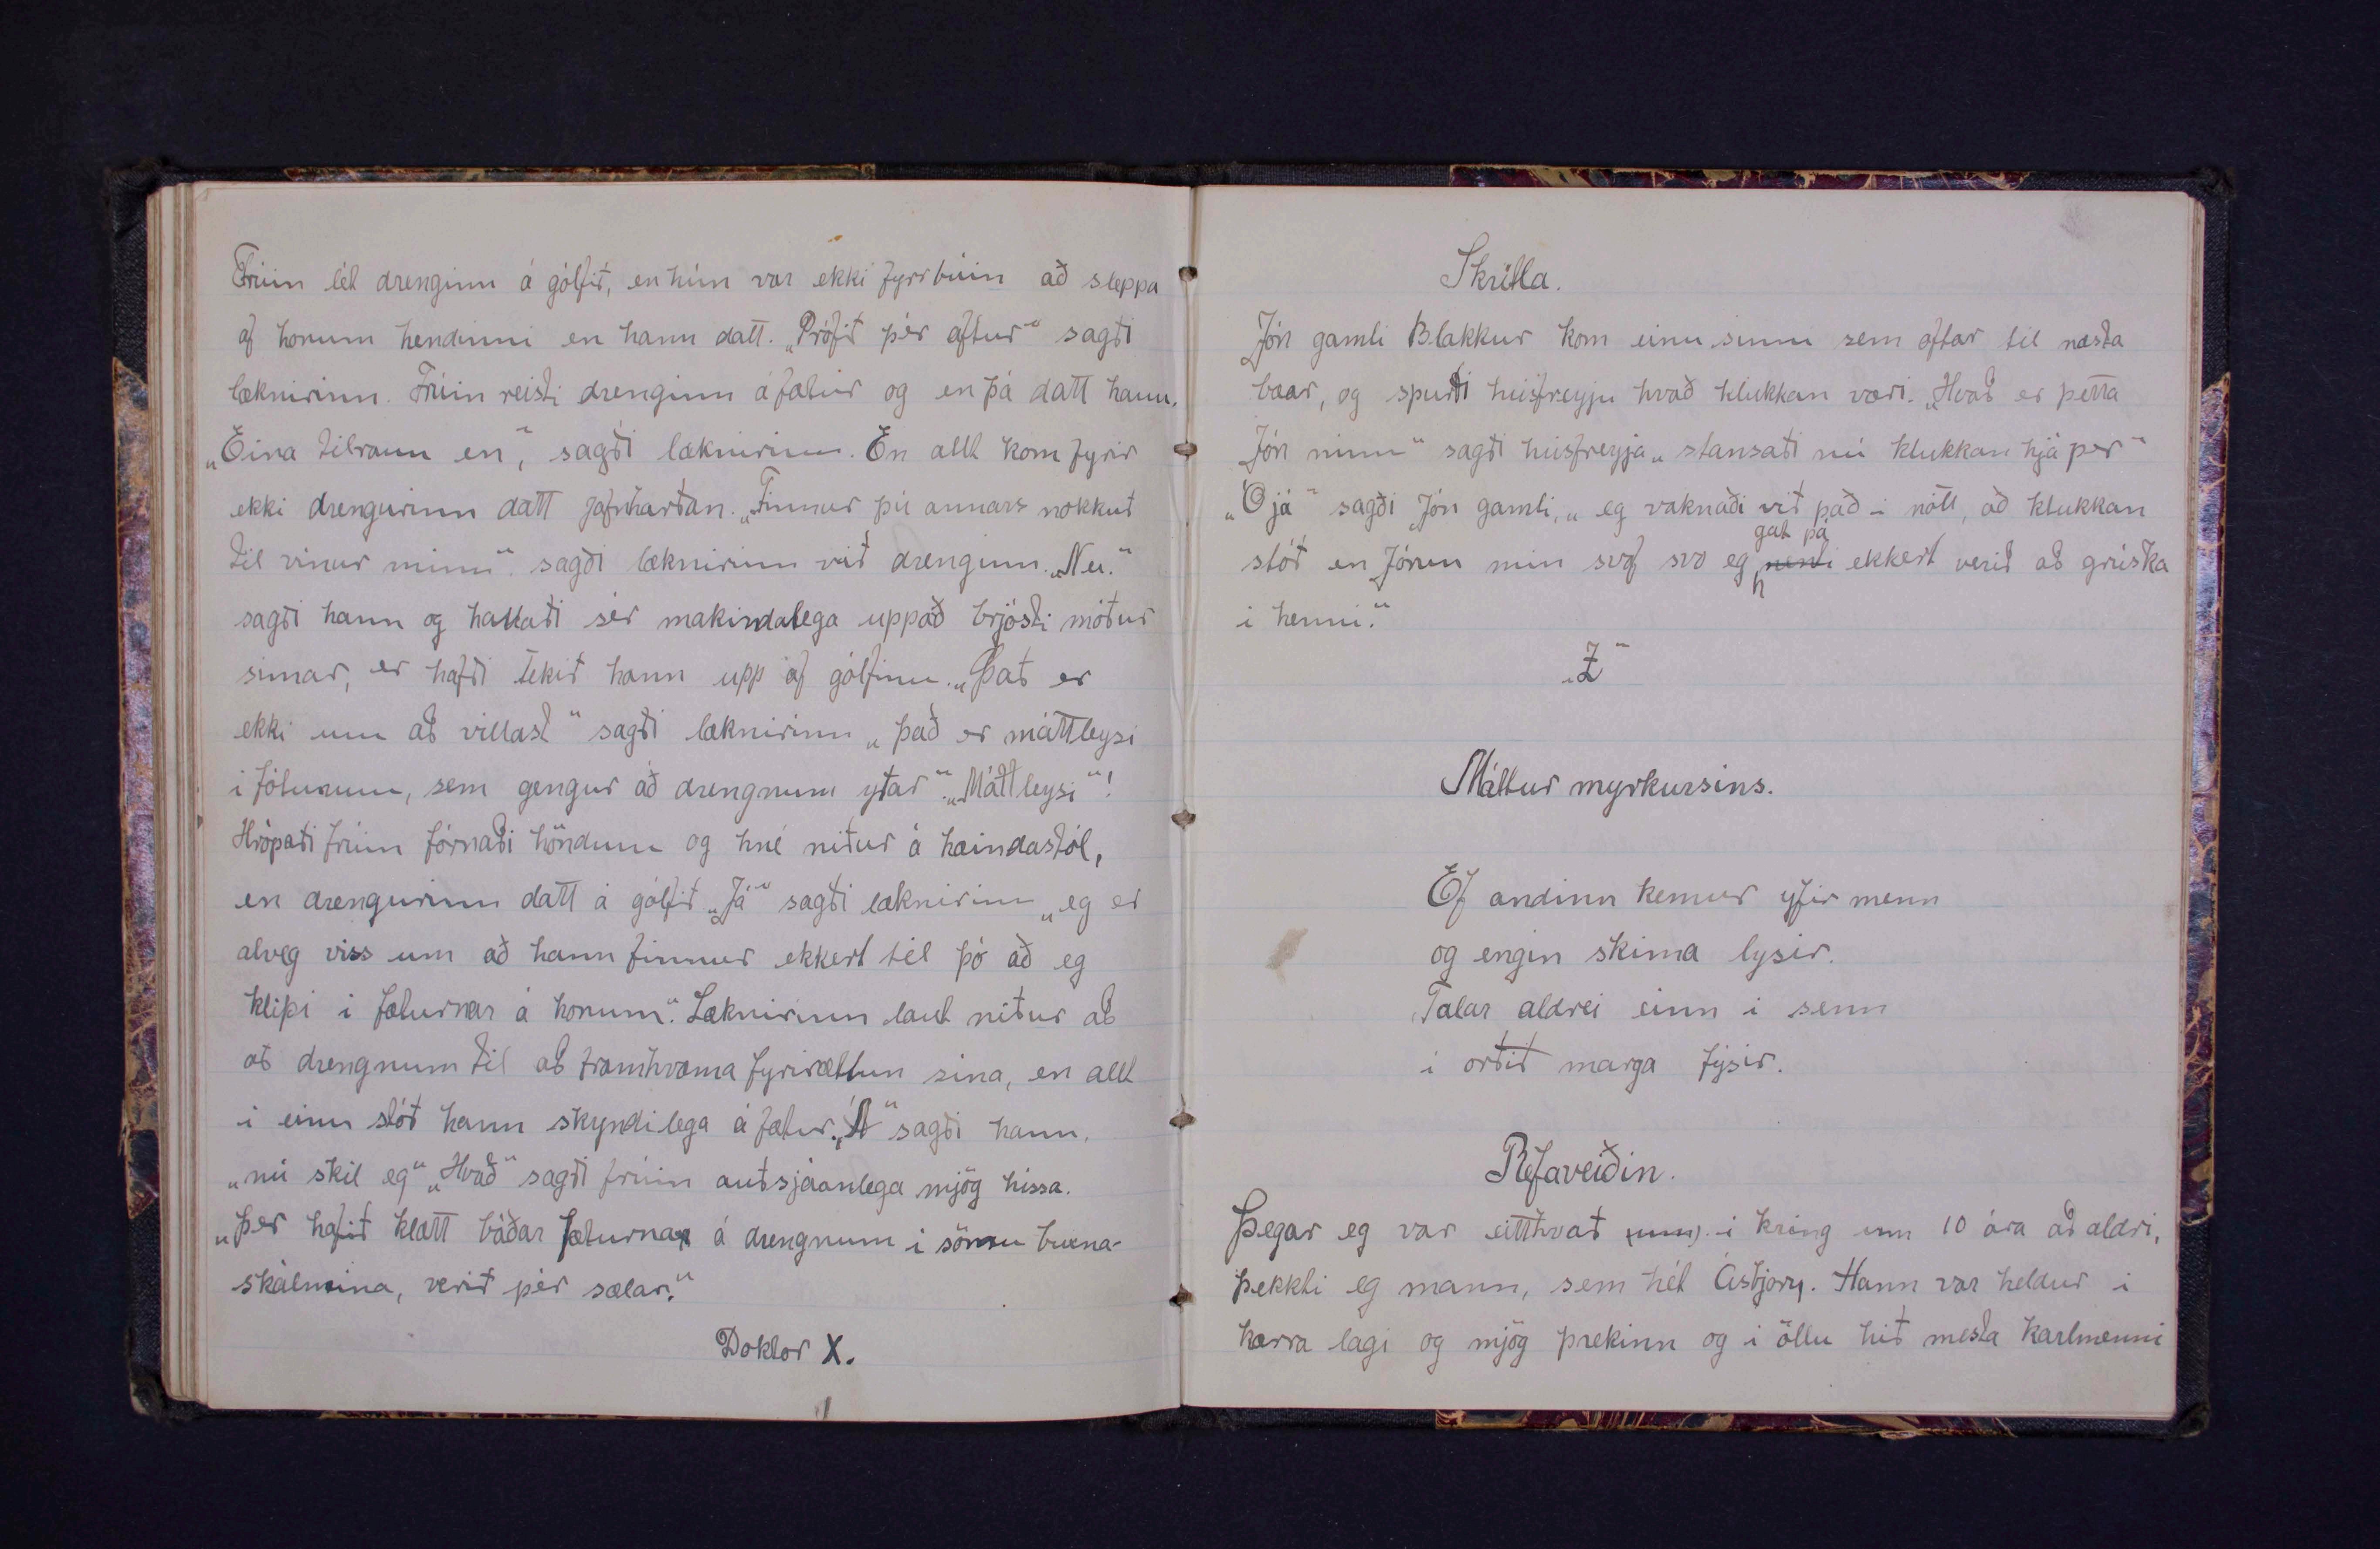 Frúin lét drenginn á gólfið, en hún var ekki fyrr búin að sleppa
af honum hendinni en hann datt. „Prófið þér aftur" sagði
læknirinn. Frúin reisti drenginn á fætur og en þá datt hann.
„Eina tilraun en", sagði læknirinn. En allt kom fyrir
ekki drengurinn datt jafnharðan. „Finnur þú annars nokkuð
til vinur minn". sagði læknirinn við drenginn. „Nei."
sagði hann og hallaði sér makindalega uppað brjósti móður
sinnar, er hafði tekið hann upp af gólfinu. „Það er
ekki um að villast" sagði læknirinn „það er máttleysi
í fótunum, sem gengur að drengnum yðar". „Máttleysi"!
Hrópaði frúin fórnaði höndum og hné niður á hæindastól,
en drengurinn datt á gólfið „Já" sagði læknirinn „eg er
alveg viss um að hann finnur ekkert til þó að eg
klípi í fæturnar á honum." Læknirinn laut niður að
að drengnum til að framkvæma fyrirætlun sína, en allt
í einu stóð hann skyndilega á fætur. „Á" sagði hann,
„nú skil eg" „Hvað" sagði frúin auðsjáanlega mjög hissa.
„Þér hafið klætt báðar fæturnar á drengnum í sömu buxna-
skálmina, verið þér sælar."
Doktor X.
Skrítla.
Jón gamli Blakkur kom einu sinni sem oftar til næsta
bæar, og spurði húsfreyju hvað klukkan væri. „Hvað er þetta
Jón minn" sagði húsfreyja „stansaði nú klukkan hjá þer"
„Ójá" sagði Jón gamli, „eg vaknaði við það í nótt, að klukkan
gat þá
stóð en Jórun mín svaf svo eg nenti ekkert verið að grúska
í henni."
„Z"
Máttur myrkursins.
Ef andinn kemur yfir menn
og engin skima lysir.
Talar aldrei einn i senn
í orðið marga fýsir.
Refaveiðin.
Þegar eg var eitthvað (um) í kring um 10 ára að aldri,
þekkti eg mann, sem hét Ásbjörn. Hann var heldur i
hærra lagi og mjög þrekinn og í öllu hið mesta karlmenni